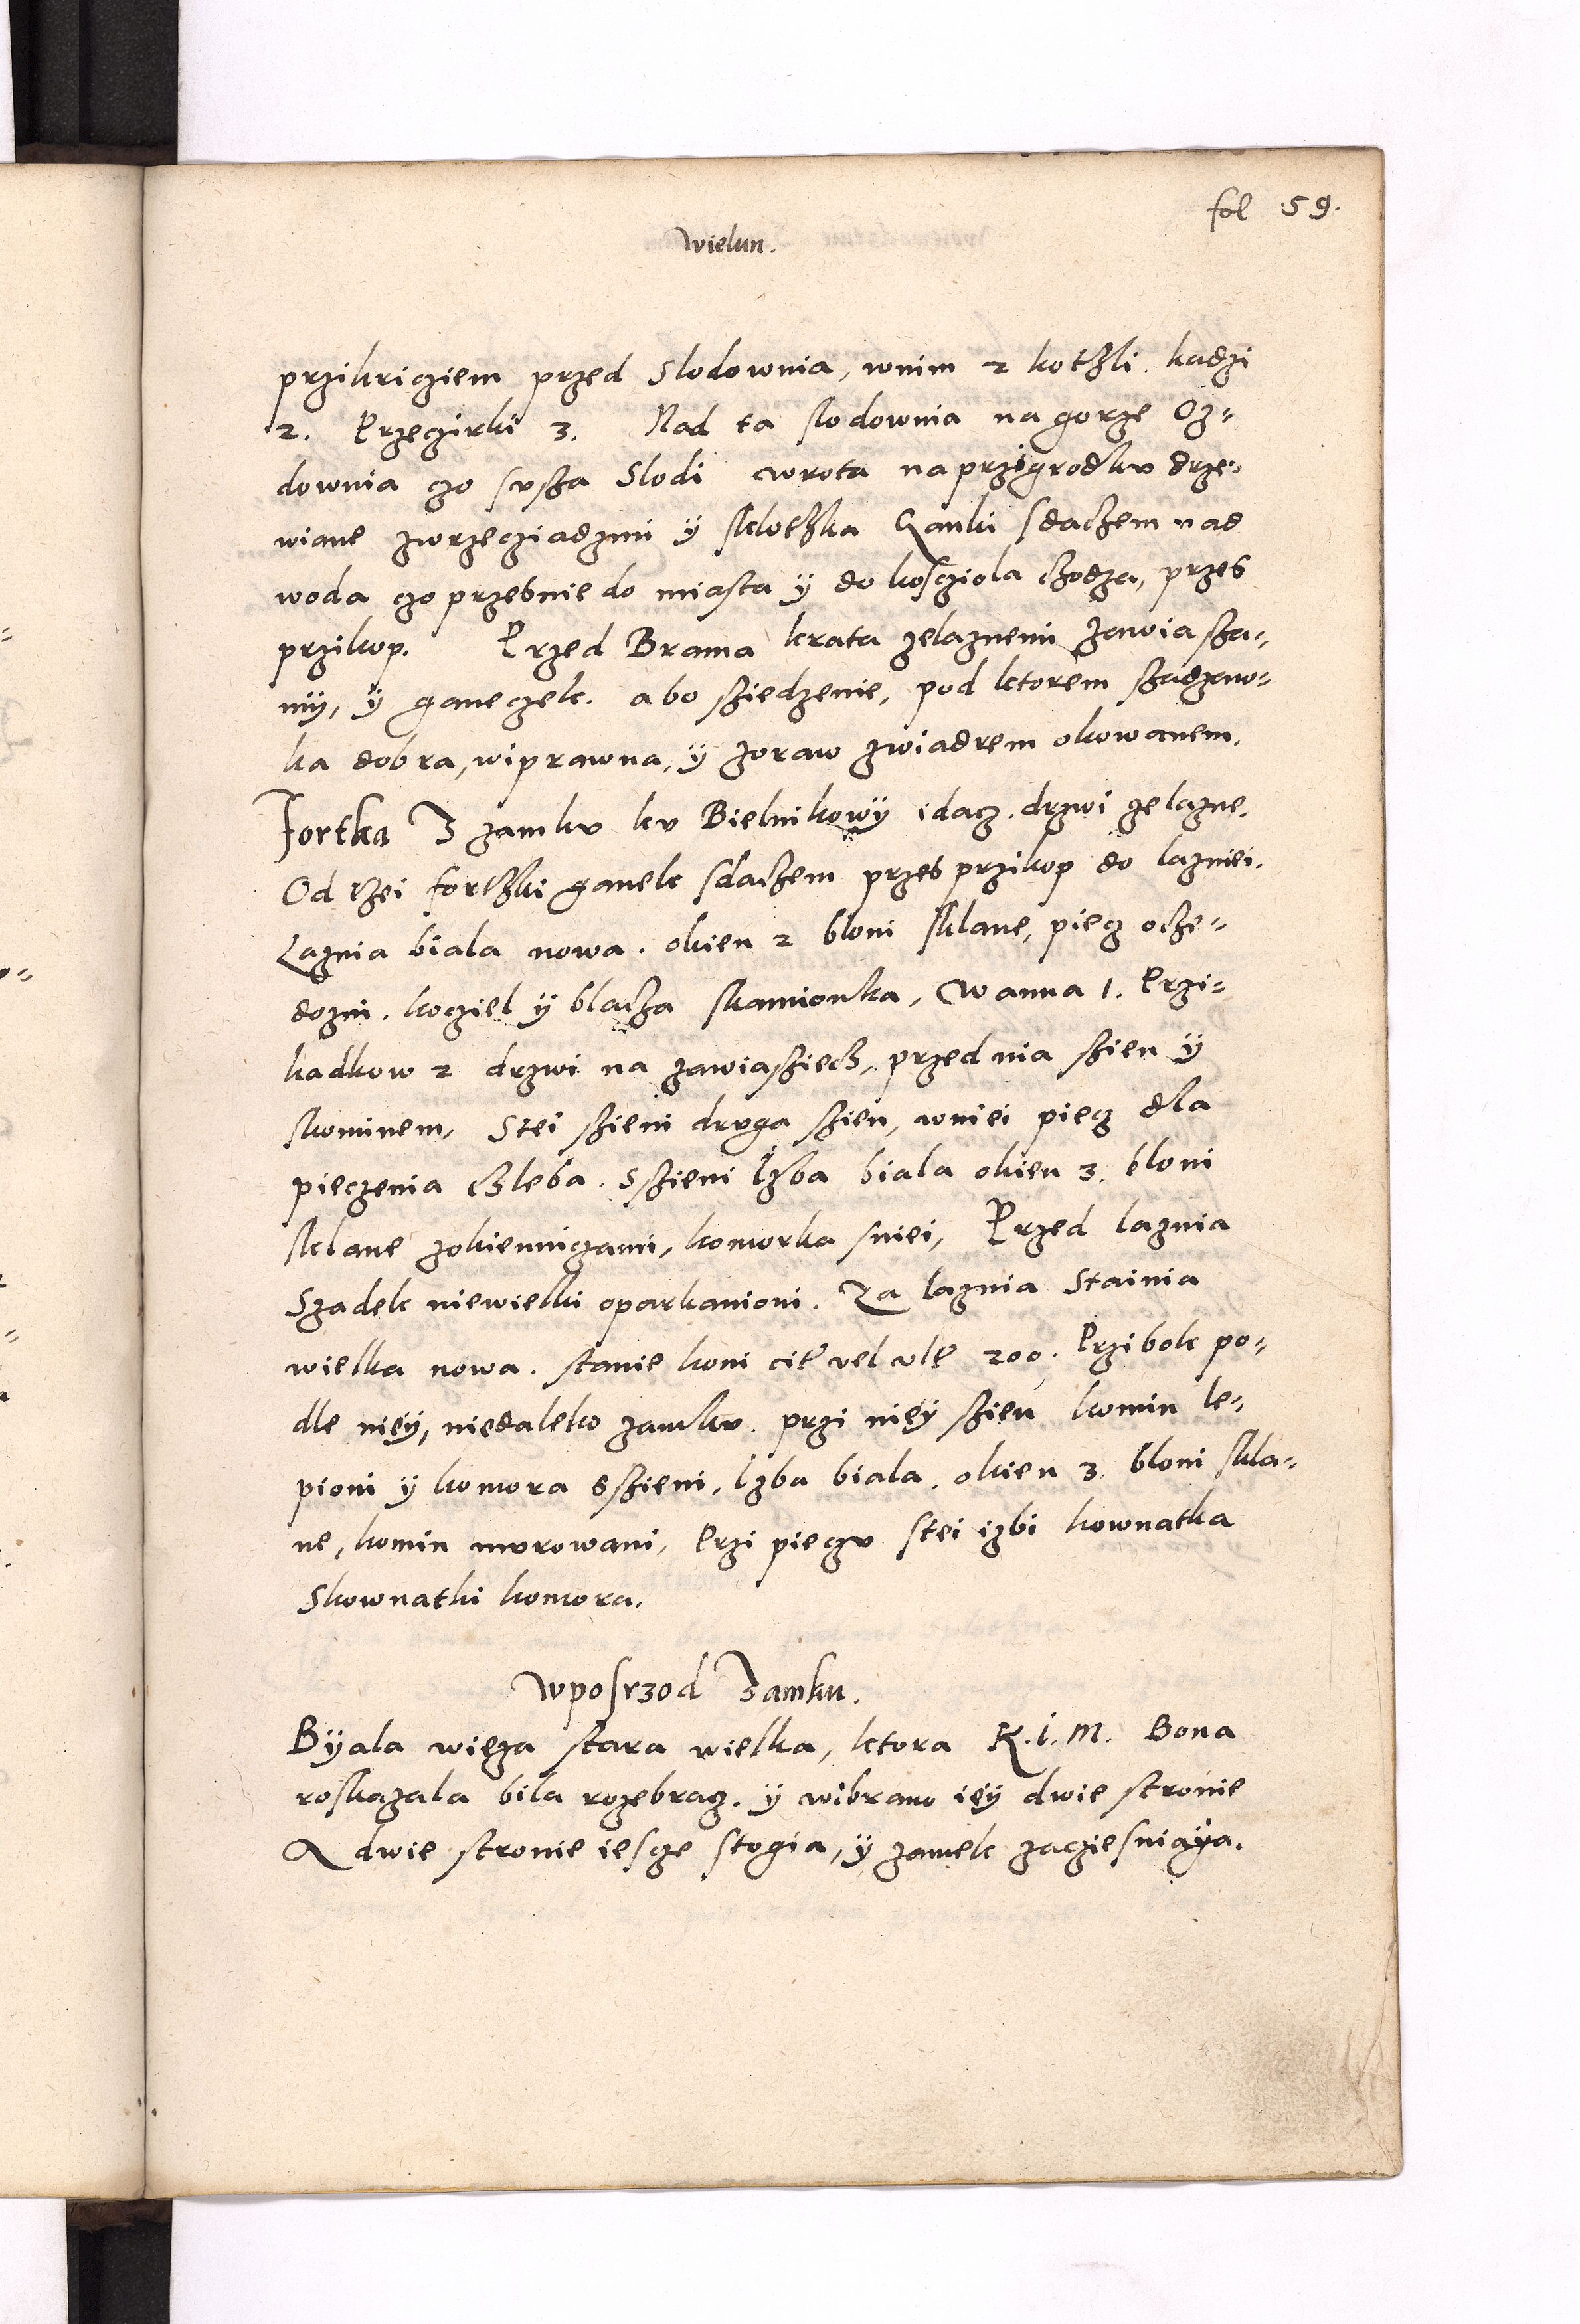 fol :59.
Wielun.
przikricziem przed Slodownia, wnim 2 kothzli. kadzi
2. Przeczirki 3. Nad ta slodownia na gorze Oz=
downia czo suscha Slodi wrota na przigrodku drze=
wiane zwrzecziadzmi ÿ sklothka Ganki sdachem nad
woda czo przesnie do miasta ÿ do kosciola chodza, przes
przikop. Przed Brama krata zelaznemi zawiasza=
mÿ, ÿ ganeczek. abo sziedzenie, pod ktorem szadzaw=
ka dobra, wiprawna, ÿ zoraw zwiadrem okowanem.
Fortka Z zamku ku Bielnikowÿ idacz. drzwi zelazne.
Od thei forthki ganek sdachem przes przikop do lazniei.
Laznia biala nowa. okien 2 bloni sklane, piecz oche=
dozni. kocziel ÿ blacha skamionka, Wanna 1. Przi=
kadkow 2 drzwi na zawiasziech, przed nia szien ÿ
skominem, Stei szieni druga szien, wniei piecz dla
pieczenia chleba. Sszieni Izba biala okien 3. bloni
sklane zokienniczami, komorka sniei, Przed laznia
Szadek niewielki oparkanioni. Za laznia Stainia
wielka nowa. stanie koni cit vel ult 200. Przibok po=
dle nieÿ, niedaleko zamku. przi nieÿ szien komin le=
pioni ÿ komora sszieni, Izba biala. okien 3. bloni skla=
ne, komin murowani, Przi pieczu stei izbi kownatka
Skownatki komora.
Wposrzod Zamku.
Bÿala wieza stara wielka, ktora K. i. M. Bona
roskazala bila rozebracz. ÿ wibrano ieÿ dwie stronie
A dwie stronie iescze stogia, ÿ zamek zacziesniaÿa.